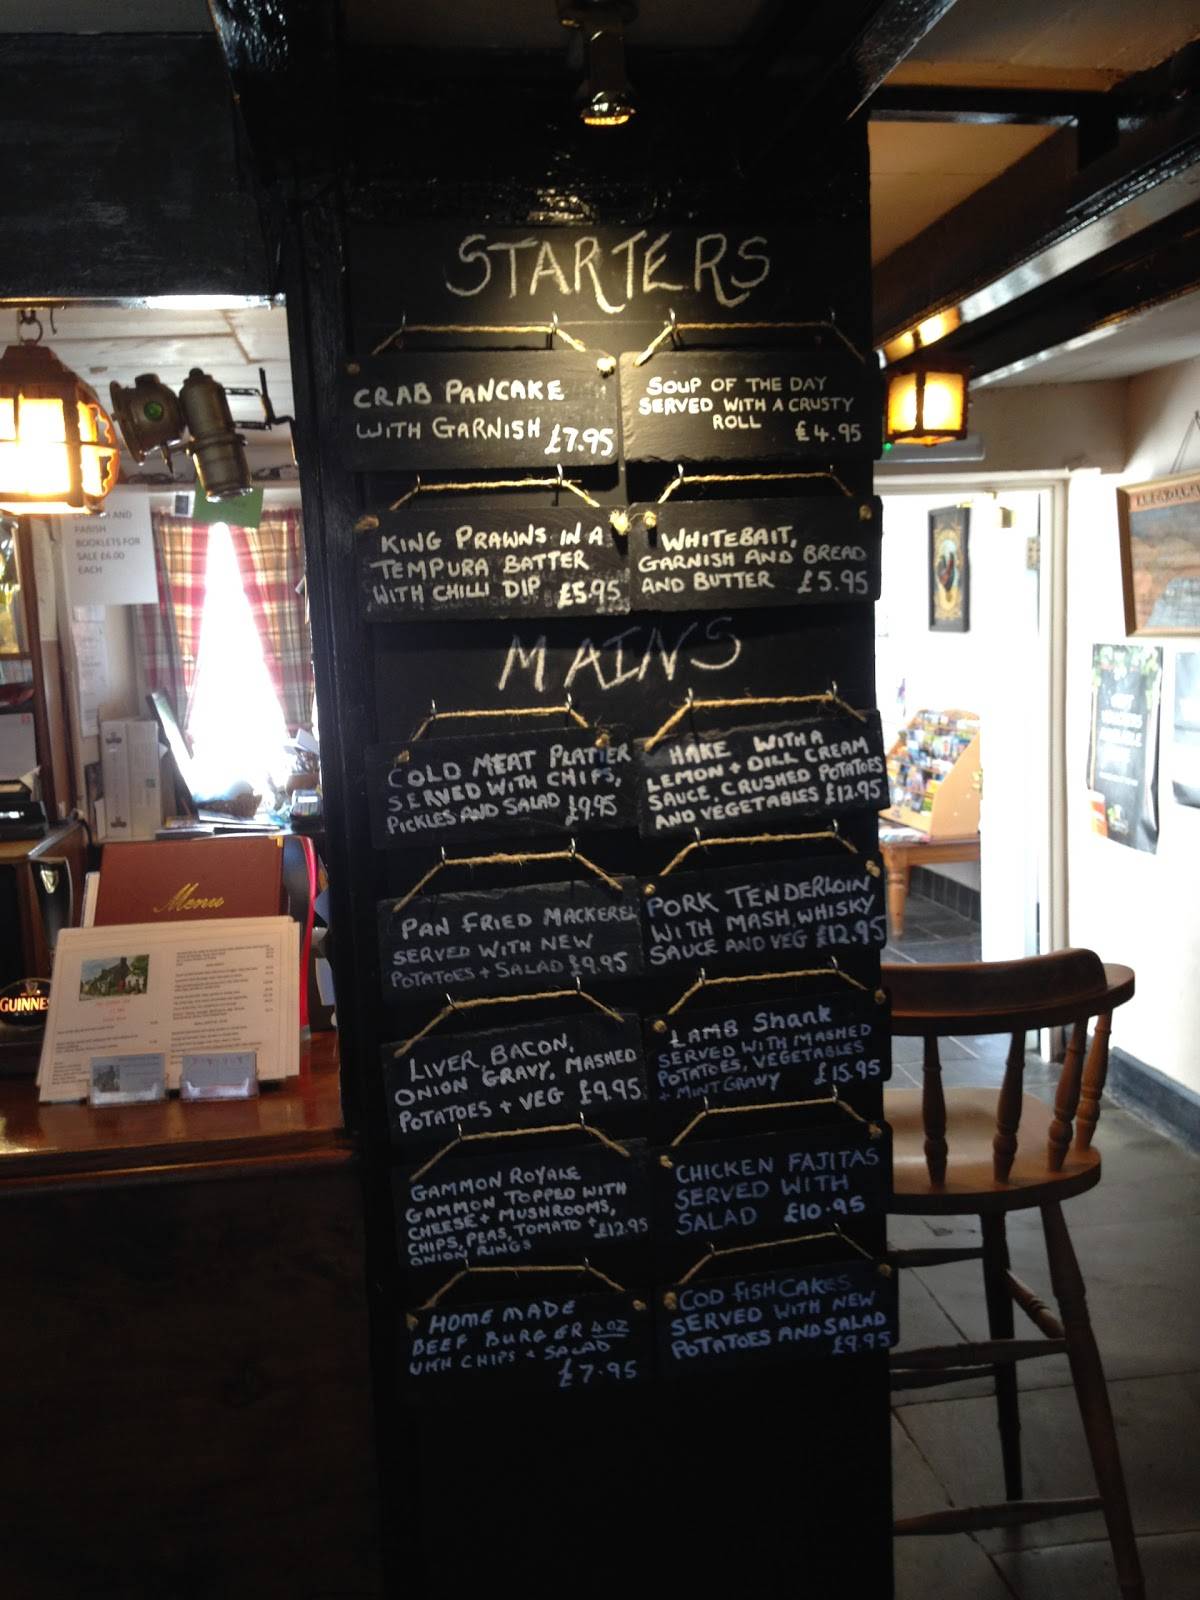 STARTERS
CRAB PANCAKE
WITH GARNISH £7.95
SOUP OF THE DAY
SERVED WITH A CRUSTY
ROLL £4.95
KING PRAWNS IN A
TEMPURA BATTER
WITH CHILLI DIP £5.95
WHITEBAIT,
GARNISH AND BREAD
AND BUTTER £5.95
MAINS
COLD MEAT PLATTER
SERVED WITH CHIPS,
PICKLES AND SALAD £9.95
HAKE WITH A
LEMON + DILL CREAM
SAUCE, CRUSHED POTATOES
AND VEGETABLES £12.95
PAN FRIED MACKEREL
SERVED WITH NEW
POTATOES + SALAD £9.95
PORK TENDERLOIN
WITH MASH, WHISKY
SAUCE AND VEG £12.95
LIVER, BACON,
ONION GRAVY, MASHED
POTATOES + VEG £9.95
LAMB Shank
SERVED WITH MASHED
POTATOES, VEGETABLES
+ MINT GRAVY £15.95
GAMMON ROYALE
GAMMON TOPPED WITH
CHEESE + MUSHROOMS,
CHIPS, PEAS, TOMATO + £12.95
ONION RINGS
CHICKEN FAJITAS
SERVED WITH
SALAD £10.95
HOME MADE
BEEF BURGER 4OZ
WITH CHIPS + SALAD
£7.95
COD FISHCAKES
SERVED WITH NEW
POTATOES AND SALAD
£9.95
AND
PARISH
BOOKLETS FOR
SALE £6.00
EACH
Menu
GUINNE